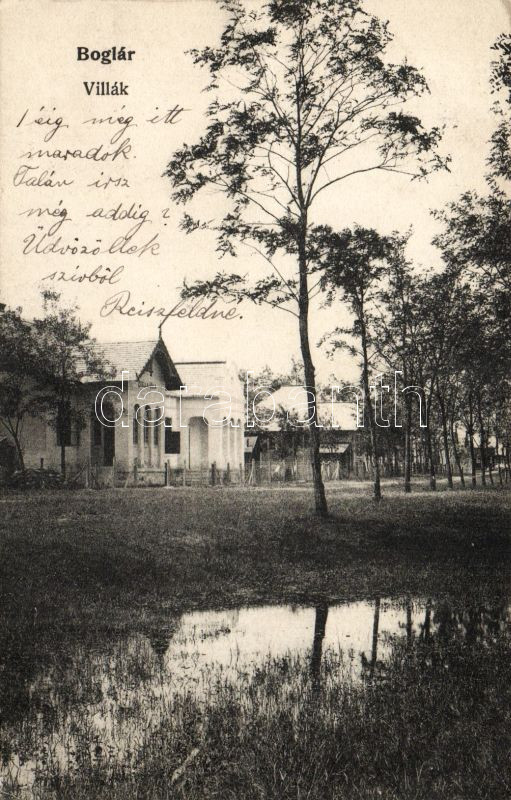 Boglár
Villák
1 éig még itt
maradok.
Talán irsz
még addig?
Üdvözöllek
szívből
Reiszfeldné.
darabanth.com